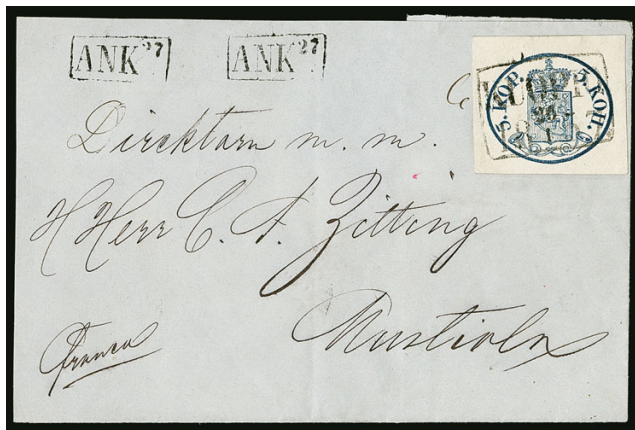 ANK 27 ANK 27
5. KOP. 5. КОП.
26
1
Direktorn m. m.
HHerr C. F. Zitting
Mustiala
Franco